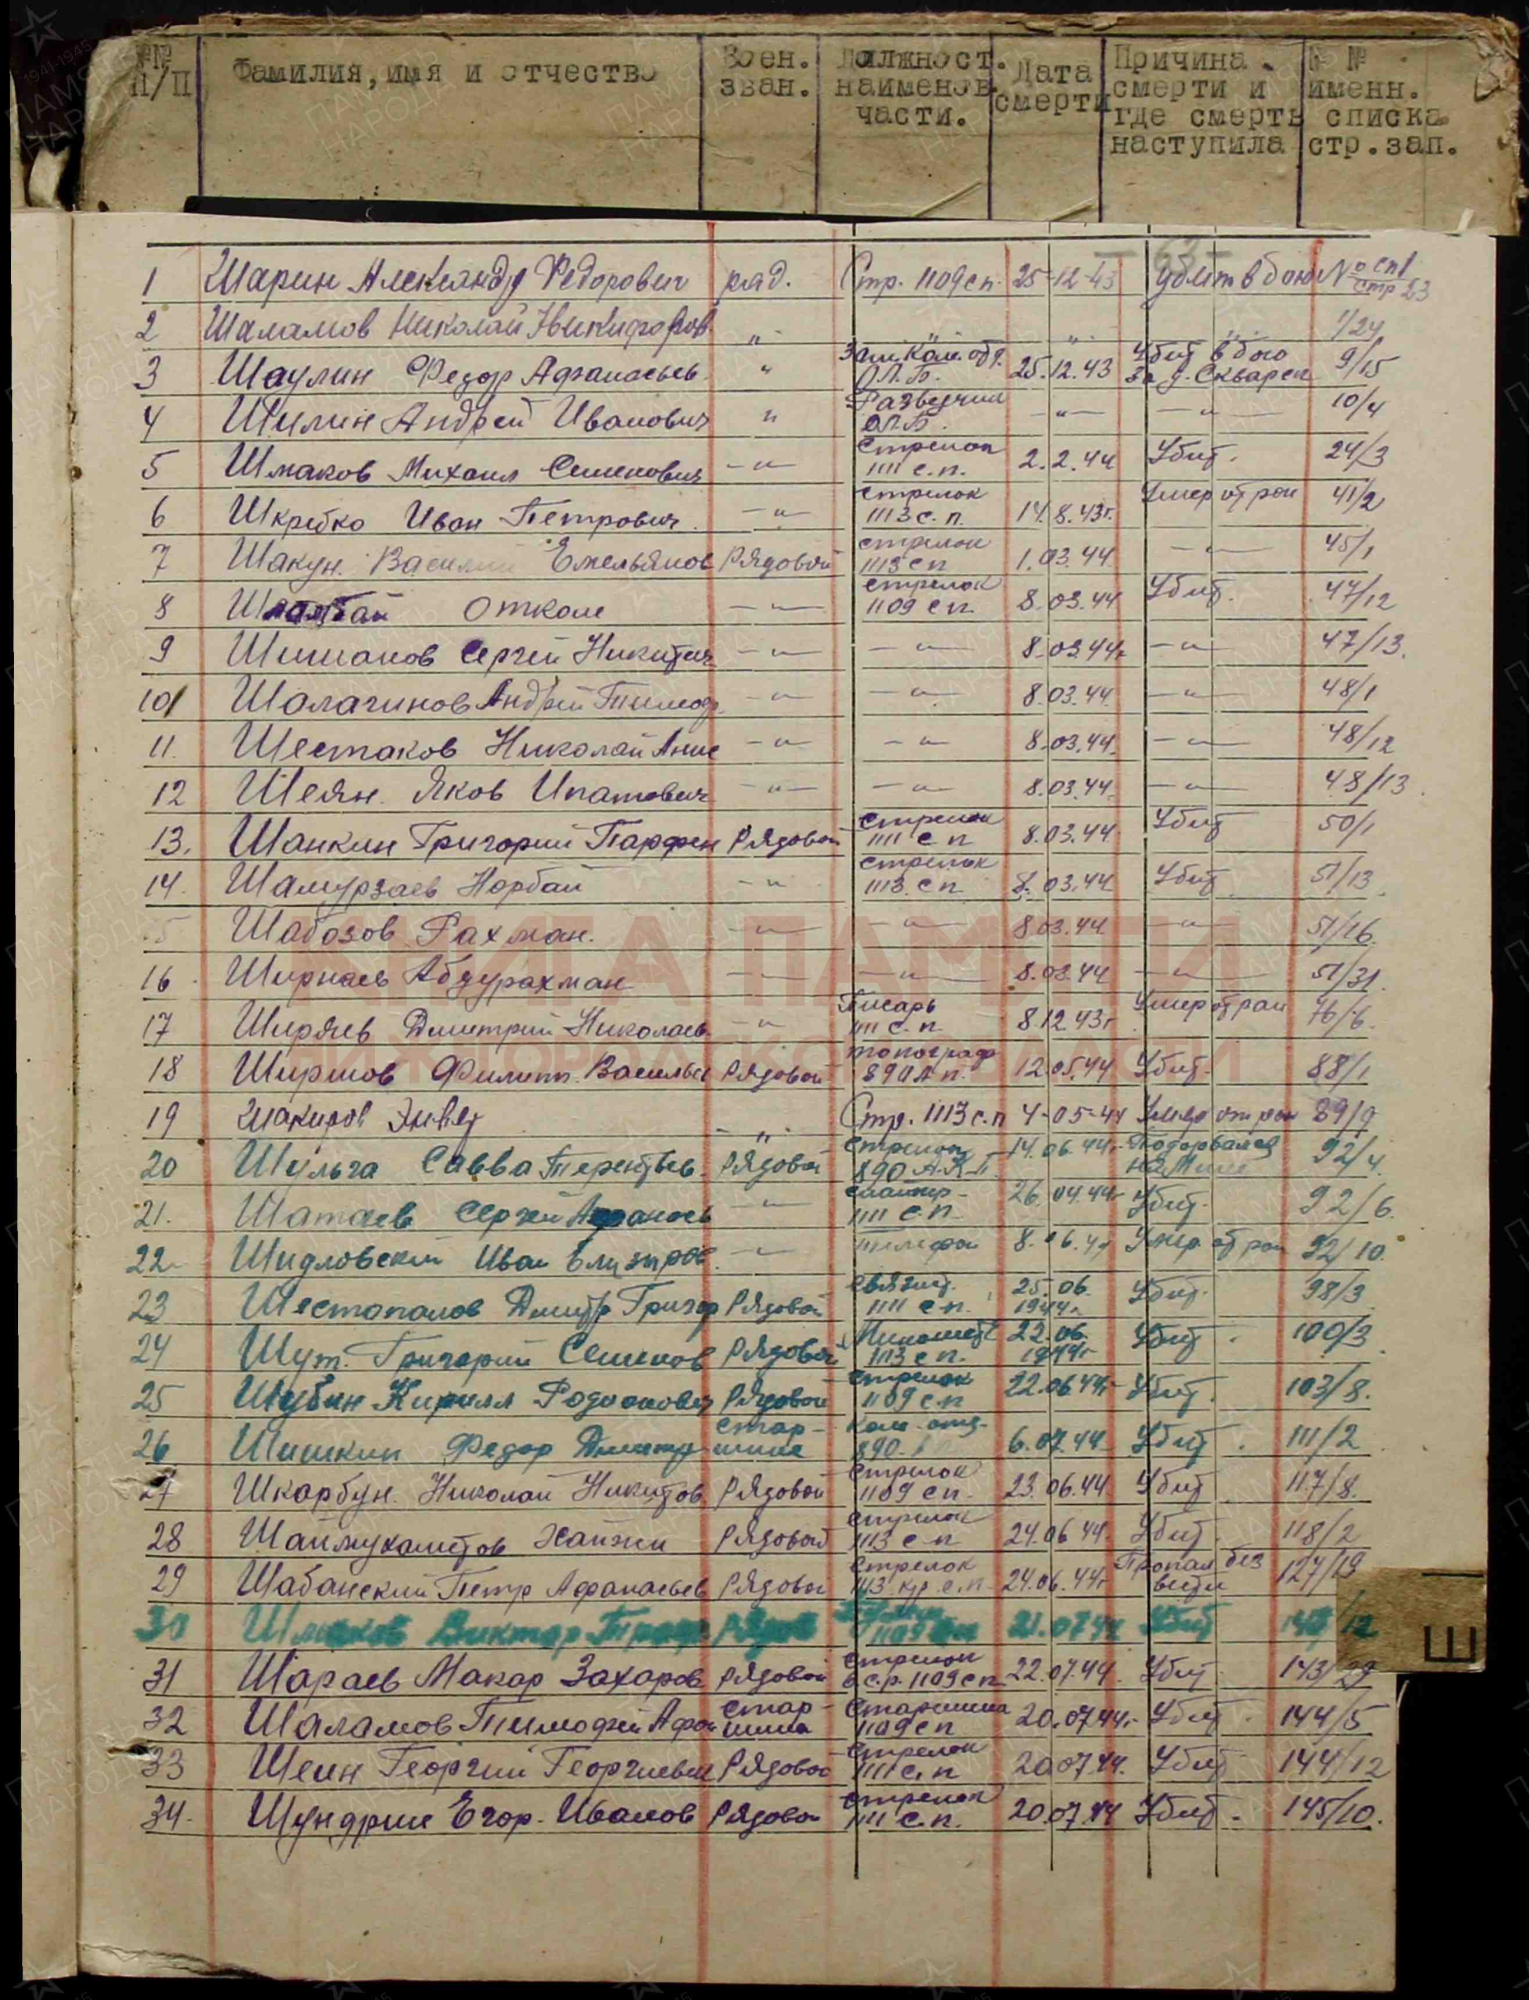 №№ п/п Фамилия, имя и отчество Воен. зван. Должност. наименов. части. Дата смерти Причина смерти и где смерть наступила № № именн. списка стр. зап.
63
1 Шарин Александр Федорович ряд. Стр. 1109 сп. 25-12-43 убит в бою № сп 1 стр 23
2 Шаламов Николай Никифоров „ „ „ „ 1/24
3 Шаулин Федор Афанасьев „ Зам. Ком. отд. О.Л.Б. 25.12.43 Убит в бою За д. Скварец 9/15
4 Шилин Андрей Иванович „ Разведчик ОЛБ. -„- -„- 10/4
5 Шмаков Михаил Семенович -„- Стрелок 1111 с.п. 2.2.44 Убит. 24/3
6 Шкребко Иван Петрович. -„- стрелок 1113 с.п. 14.8.43г. Умер от ран 41/2
7 Шакун. Василий Емельянов Рядовой стрелок 1113 сп 1.03.44 -„- 45/1
8 Откале -„- стрелок 1109 сп. 8.03.44 Убит. 47/12
9 Шишанов Сергей Никитич -„- -„- 8.03.44г -„- 47/13.
10 Шалагинов Андрей Тимоф. -„- -„- 8.03.44 -„- 48/1
11. Шестаков Николай Анис -„- -„- 8.03.44. -„- 48/12
12 Шеян. Яков Ипатович -„- -„- 8.03.44. -„- 48/13
13. Шанкин Григорий Парфен Рядовой Стрелок 1111 с п 8.03.44 Убит 50/1
14. Шамурзаев Норбай -„- стрелок 1113. с п 8.03.44 Убит 51/13
Шабозов Рахман. -„- -„- 8.03.44 -„- 51/16
16 Ширнаев Абдурахман -„- -„- 8.03.44 -„- 51/31.
17 Ширяев Дмитрий Николаев. -„- Писарь 1111 с.п. 8.12.43г Умер от ран 76/6.
18 Ширшов Филипп. Васильев Рядовой топограф 890 А п. 12.05.44 Убит. 88/1
19 Шакиров Энвер „ Стр. 1113 с.п 4-05-44 Умер от ран 89/9
20 Шульга Савва Терентьев. Рядовой стрелок 890 А.К.П. 14.06.44г. Подорвался на Мине 92/4.
21. Шатаев Сергей Афанасьев -„- снайпер. 1111 с.п. 26.04.44г Убит. 92/6.
22 Шидловский Иван -„- телефон 8.06.44 Умер от ран 92/10.
23 Шестопалов Дмитр Григор Рядовой связист. 1111 с п. 25.06. 1944г. Убит. 98/3
24 Шут. Григорий Семенов Рядовой Миномет 1113 с п. 22.06. 1944г Убит. 100/3
25 Шубин Кирилл Родионович Рядовой стрелок 1109 с п 22.06.44г Убит. 103/8.
26 Шишкин Федор Дмитр стар-шина Ком. отд. 890. 6.07.44 Убит. 111/2
27 Шкарбун. Николай Никитов. Рядовой стрелок 1109 с п. 23.06.44. Убит 117/8.
28 Шаймухаметов Рядовой стрелок 1113 с п 24.06 44. Убит. 118/2
29 Шабанский Петр Афанасьев Рядовой стрелок 1113 кр. с.п. 24.06.44г Пропал без вести 127/19
30 Шмаков Виктор Рядов 1109 сп 21.07.44 Убит
31 Шараев Макар Захаров Рядовой стрелок 6 с.р. 1109 с п 22.07.44. Убит. 143/29
32 Шаламов Тимофей Афон стар-шина Старшина 1109 сп 20.07.44г. Убит. 144/5
33 Шеин Георгий Георгиевич Рядовой стрелок 1111 с. п 20.07.44. Убит 144/12
34. Шундрин Егор. Иванов Рядовой стрелок 1111 с.п. 20.07.44 Убит. 145/10.
Ш
КНИГА ПАМЯТИ
НИЖЕГОРОДСКОЙ ОБЛАСТИ